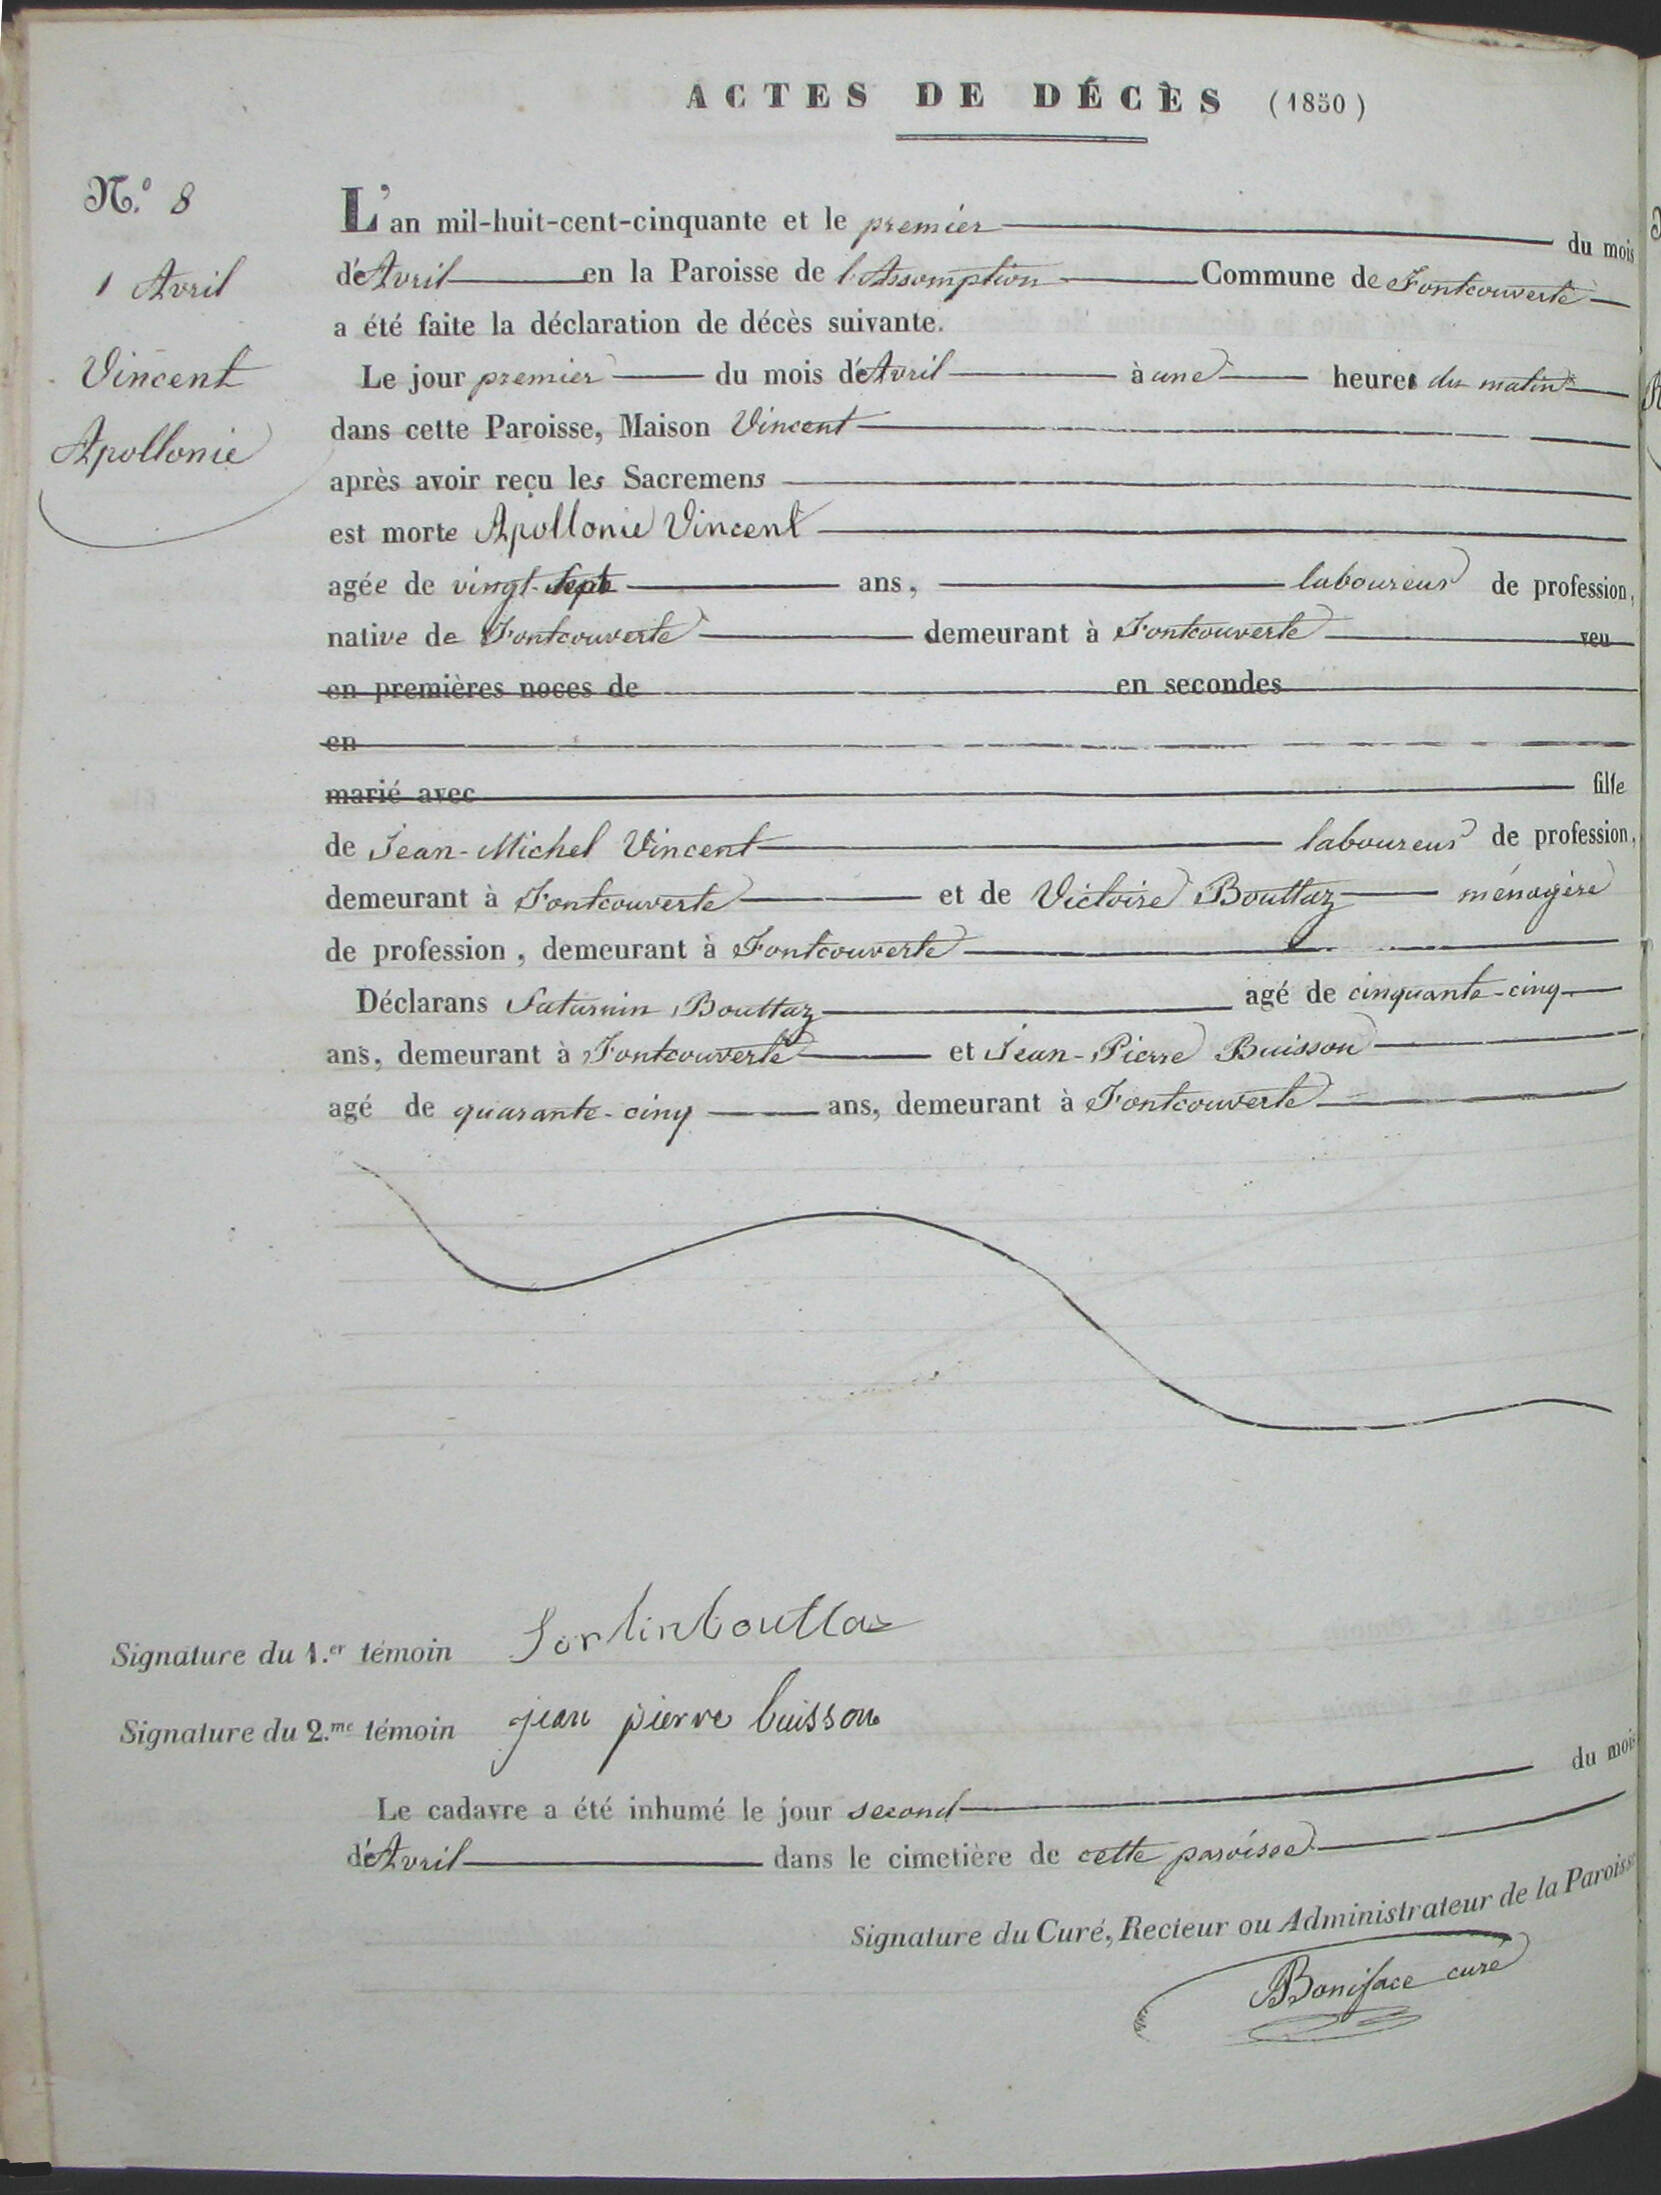 ACTES DE DÉCÈS (1850)
N.º 8
1 Avril
Vincent
Apollonie
L'an mil-huit-cent-cinquante et le premier du mois
d'Avril en la Paroisse de l'Assomption Commune de Fontcouverte
a été faite la déclaration de décès suivante.
Le jour premier du mois d'Avril à une heure du matin
dans cette Paroisse, Maison Vincent
après avoir reçu les Sacremens
est morte Apollonie Vincent
agée de vingt-sept ans, laboureur de profession,
native de Fontcouverte demeurant à Fontcouverte veu
en premières noces de en secondes
en
marié avec fille
de Jean-Michel Vincent laboureur de profession,
demeurant à Fontcouverte et de Victoire Bouttaz ménagère
de profession, demeurant à Fontcouverte
Déclarans Saturnin Bouttaz agé de cinquante-cinq
ans, demeurant à Fontcouverte et Jean-Pierre Buisson
agé de quarante-cinq ans, demeurant à Fontcouverte
Signature du 1.er témoin
Signature du 2.me témoin jean pierre buisson
Le cadavre a été inhumé le jour second du mois
d'Avril dans le cimetière de cette paroisse
Signature du Curé, Recteur ou Administrateur de la Paroisse
Boniface curé